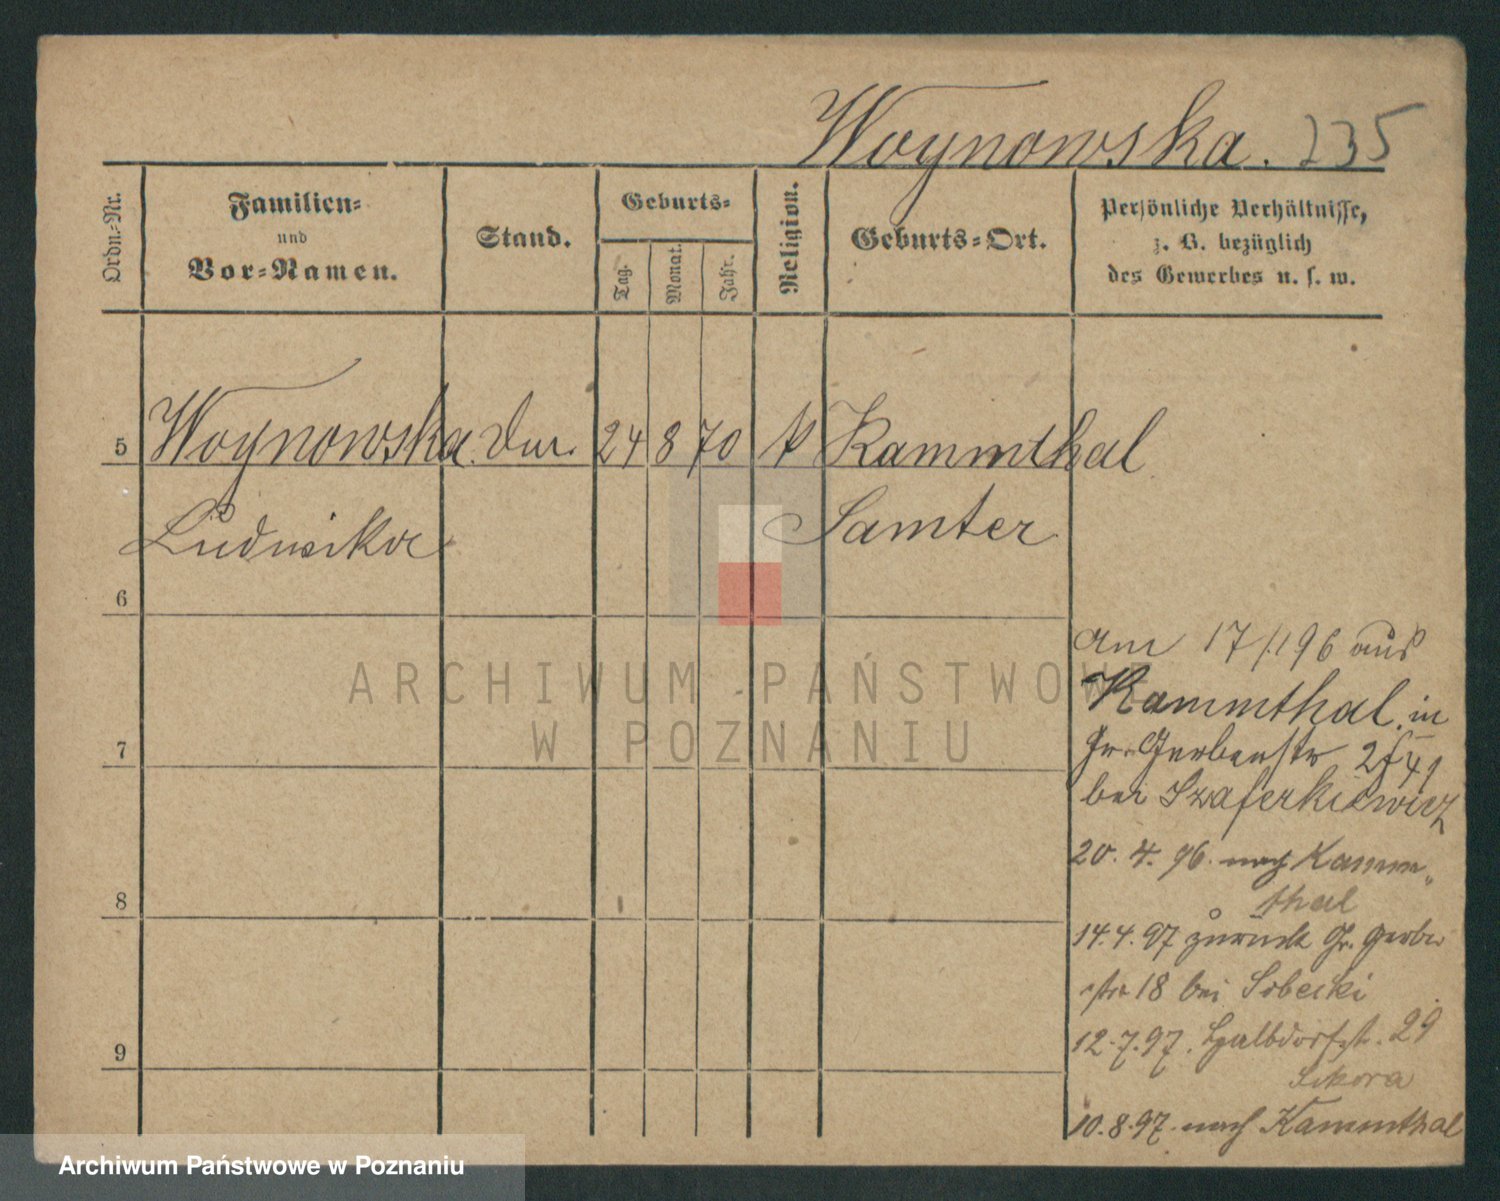 Woynowska. 235
Ordn.-Nr.
Familien-
und
Vor-Namen.
Stand.
Geburts-
Tag.
Monat.
Jahr.
Religion.
Geburts-Ort.
Persönliche Verhältnisse,
z. B. bezüglich
des Gewerbes u. s. w.
5 Woynowska 24 8 70 k Kammthal
Ludwika Samter
6
am 17/1 96 aus
Kammthal in
Gr. Gerberstr
bei Szaferkiewicz
7
20. 4. 96. nach Kamm-
thal
8
14.4.97 zurück Gr. Gerber
str 18 bei Sobecki
12.7.97. Halbdorfst. 29
Sikora
9
10.8.97. nach Kammthal
ARCHIWUM PAŃSTWOWE
W POZNANIU
Archiwum Państwowe w Poznaniu